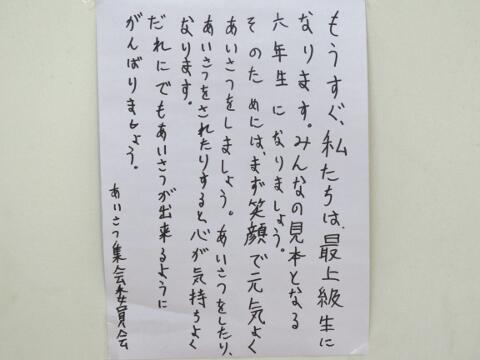 もうすぐ、私たちは、最上級生に
なります。みんなの見本となる
六年生になりましょう。
そのためには、まず笑顔で元気よく
あいさつをしましょう。あいさつをしたり、
あいさつをされたりすると心が気持ちよく
なります。
だれにでもあいさつが出来るように
がんばりましょう。
あいさつ集会委員会